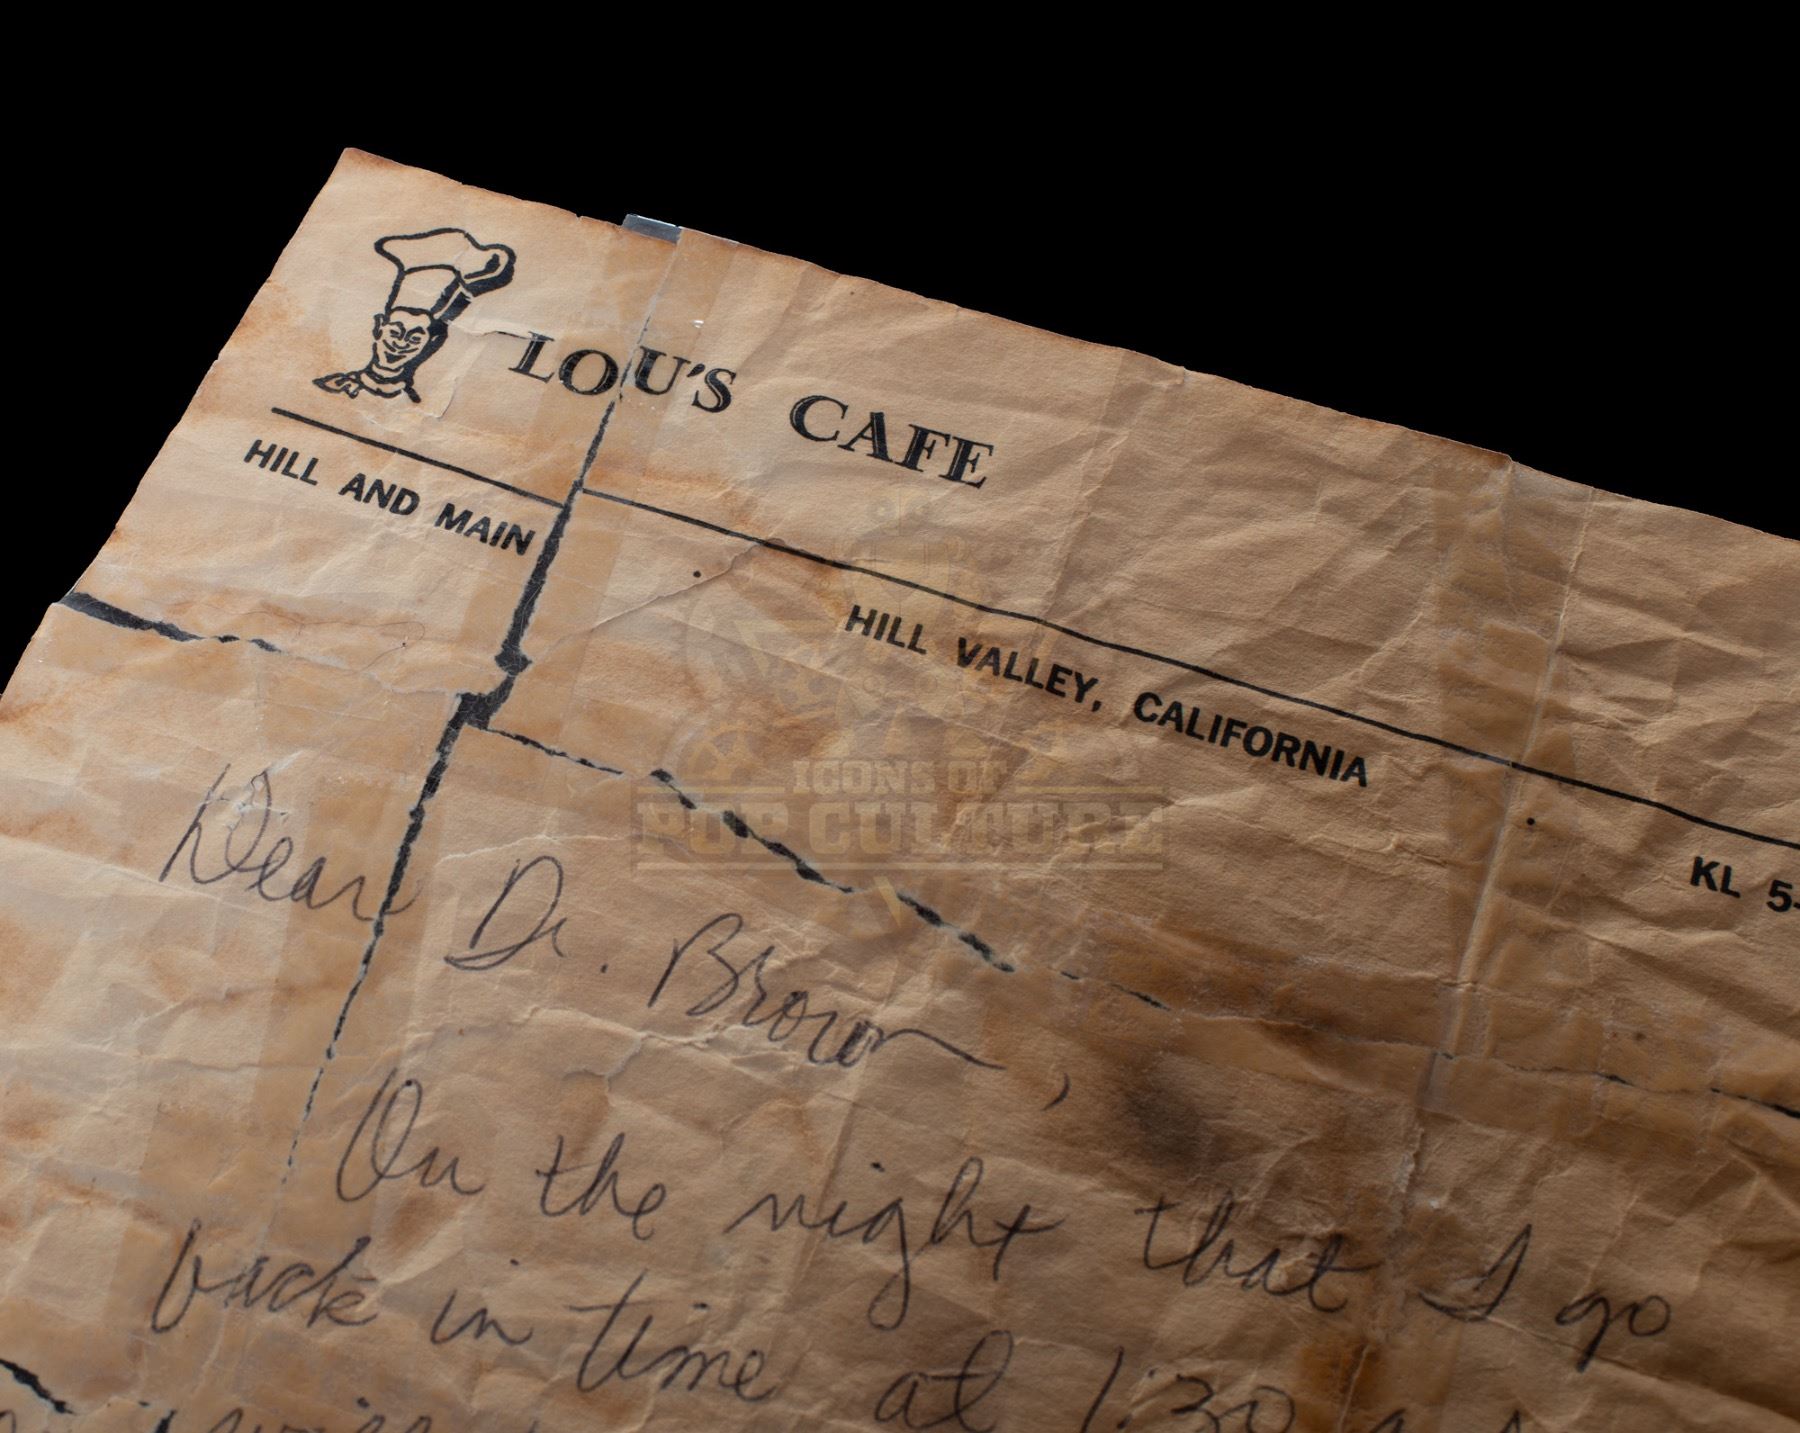 LOU'S CAFE
HILL AND MAIN
HILL VALLEY, CALIFORNIA
KL 5-
ICONS OF
POP CULTURE
Dear Dr. Brown,
On the night that I go
back in time at 1:30